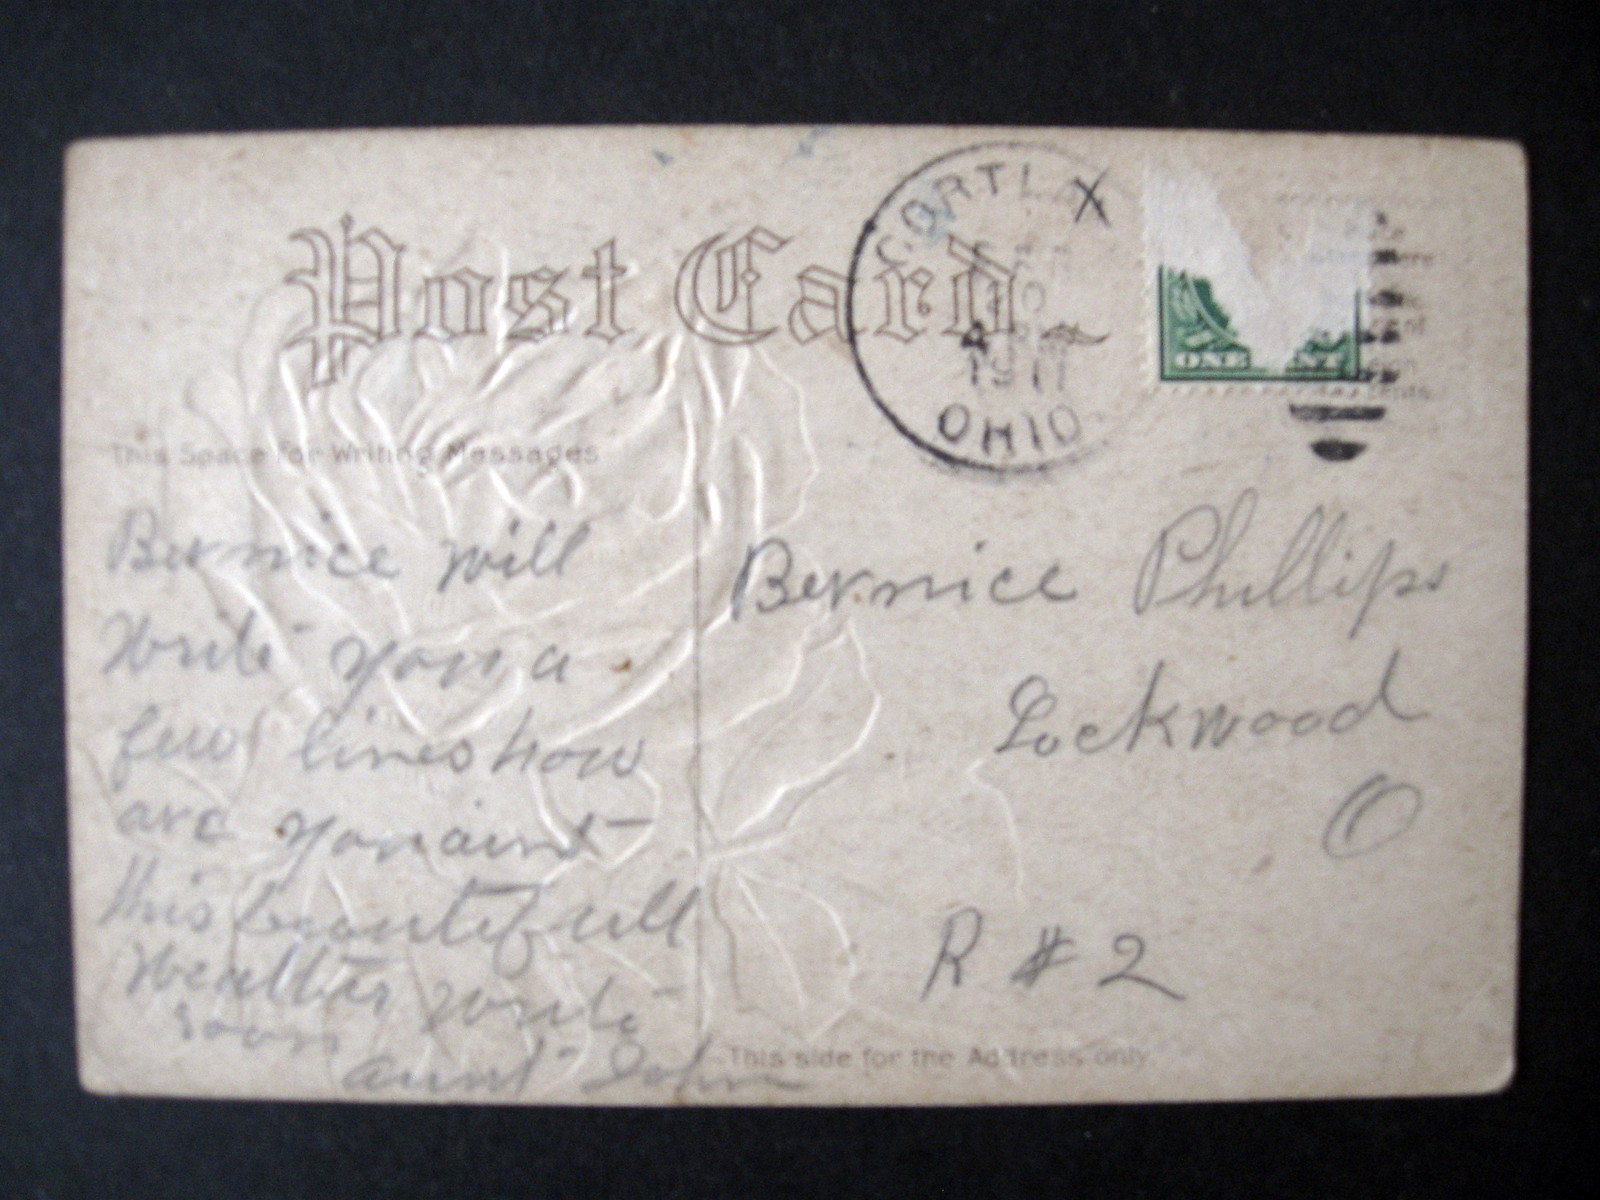 Post Card
CORTLA
X
1911
OHIO
ONE NT
This Space For Writing Messages
Bernice will
Write you a
few lines how
are you aint
this beautifull
Weather write
soon
aunt John
Bernice Phillips
Lockwood
O
R # 2
This side for the Address only.